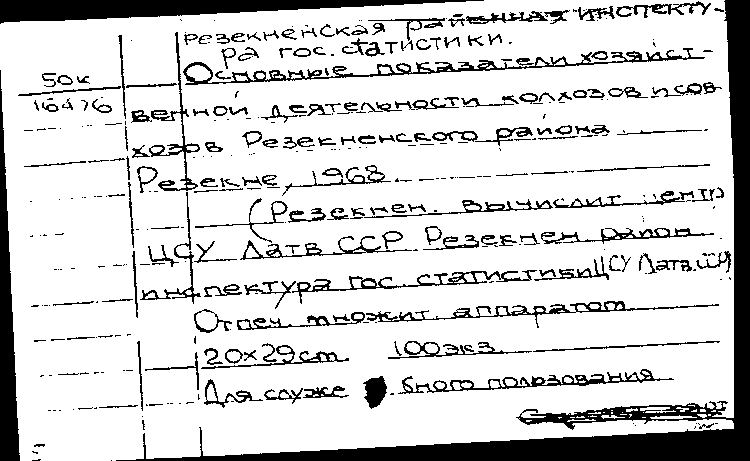 Резекненская районная инспекту-
ра гос. статистики.
50к
Основные показатели хозяйст-
16476
венной деятельности колхозов и сов-
хозов Резекненского района
Резекне, 1968.
(Резекнен. вычислит центр
ЦСУ Латв ССР Резекнен район
инспектура гос. статистики ЦСУ Латв. ССР)
Отпеч. множит. аппаратом
20x29cm. 100 экз.
Для служе бного пользования